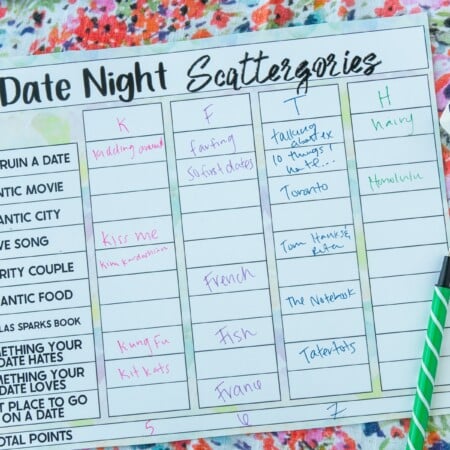 Date Night Scattergories
K F T H
RUIN A DATE
kidding around
farting
talking about ex
hairy
ANTIC MOVIE
50 first dates
10 things I hate...
ANTIC CITY
Toronto
Honolulu
VE SONG
Kiss me
RITY COUPLE
Kim Kardashian
Tom Hanks & Rita
ANTIC FOOD
French
LAS SPARKS BOOK
The Notebook
METHING YOUR DATE HATES
Kung Fu
Fish
METHING YOUR DATE LOVES
Kit Kats
Tatertots
T PLACE TO GO ON A DATE
France
TOTAL POINTS
5 6 7